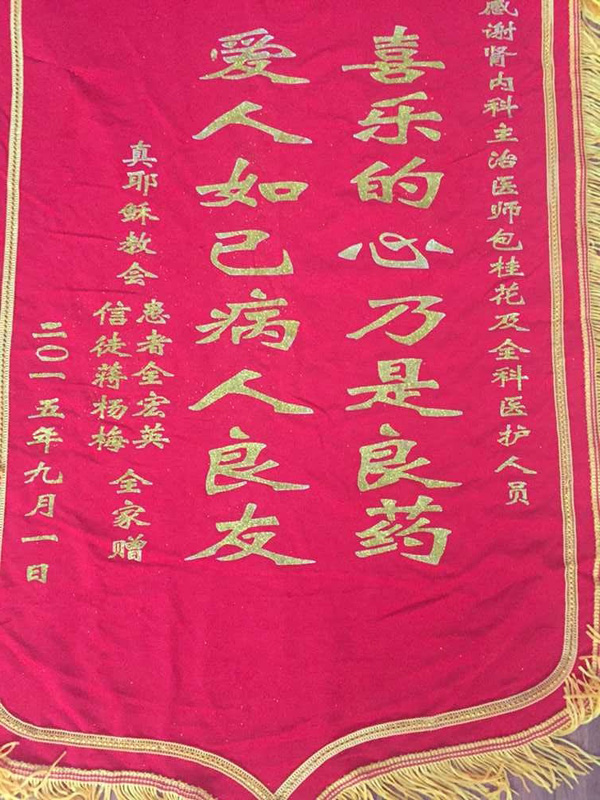 感谢肾内科主治医师包桂花及全科医护人员
喜乐的心乃是良药
爱人如己病人良友
真耶稣教会
患者全宏英
信徒蒋杨梅
全家赠
二〇一五年九月一日